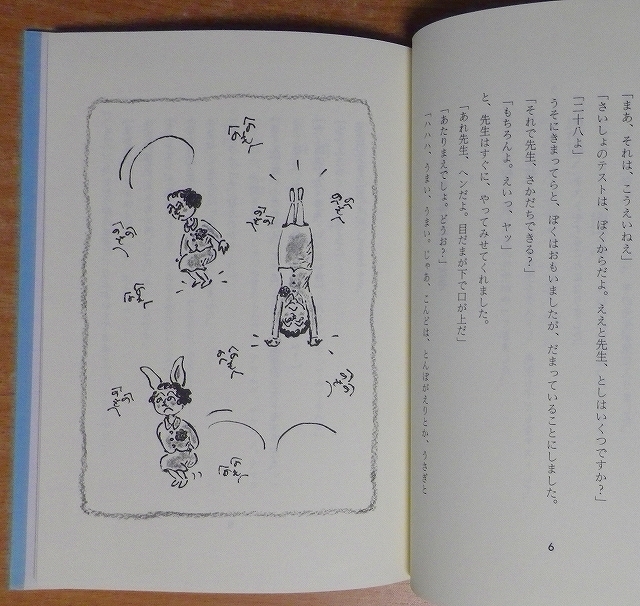 「まあ、それは、こうえいねえ」
「さいしょのテストは、ぼくからだよ。ええと先生、としはいくつですか？」
「二十八よ」
うそにきまってらと、ぼくはおもいましたが、だまっていることにしました。
「それで先生、さかだちできる？」
「もちろんよ。えいっ、ヤッ」
と、先生はすぐに、やってみせてくれました。
「あれ先生、ヘンだよ。目だまが下で口が上だ」
「あたりまえでしょ。どうお？」
「ハハハ、うまい、うまい。じゃあ、こんどは、とんぼがえりとか、うさぎと
6